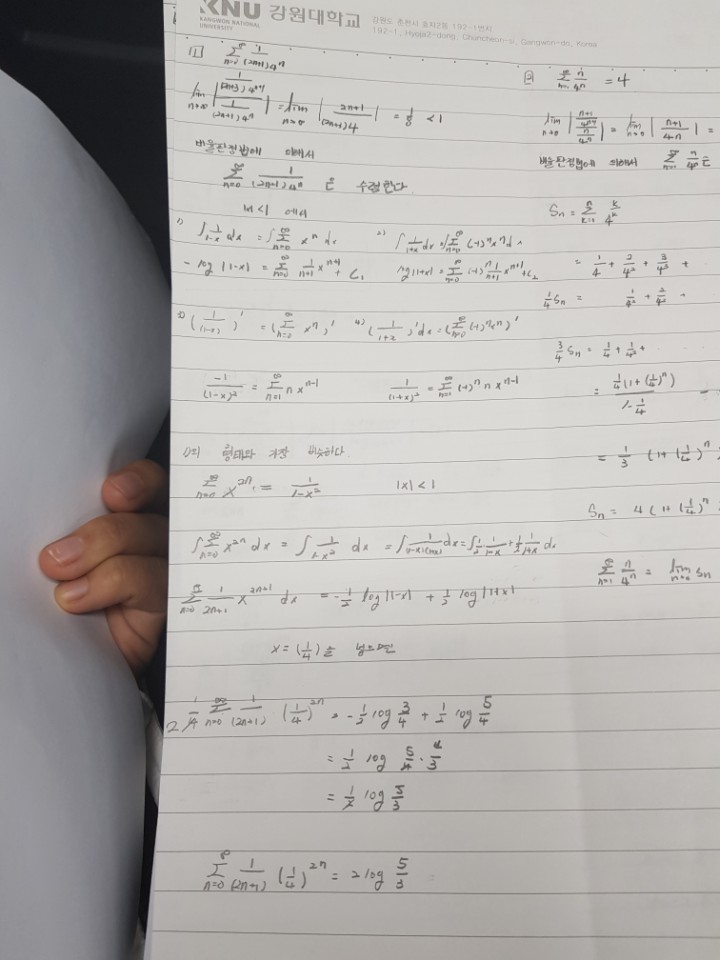 KNU 강원대학교
KANGWON NATIONAL UNIVERSITY
강원도 춘천시 효자2동 192-1번지
192-1, Hyoja2-dong, Chuncheon-si, Gangwon-do, Korea
① ∑_{n=0}^∞ 1/((2n+1)4^n)
lim_{n→∞} |(1/((2n+3)4^{n+1}))/(1/((2n+1)4^n))| = lim_{n→∞} |(2n+1)/((2n+3)4)| < 1
비율판정법에 의해서
∑_{n=0}^∞ 1/((2n+1)4^n) 은 수렴한다.
에서
1) ∫ 1/(1-x) dx = ∫ ∑_{n=0}^∞ x^n dx
- log |1-x| = ∑_{n=0}^∞ 1/(n+1) x^{n+1} + C₁
2) ∫ 1/(1+x) dx = ∫ ∑_{n=0}^∞ (-1)^n x^n dx
log |1+x| = ∑_{n=0}^∞ (-1)^n 1/(n+1) x^{n+1} + C₂
3) (1/(1-x))' = (∑_{n=0}^∞ x^n)'
-1/(1-x)² = ∑_{n=1}^∞ n x^{n-1}
4) (1/(1+x))' dx = (∑_{n=0}^∞ (-1)^n x^n)'
1/(1+x)² = ∑_{n=1}^∞ (-1)^n n x^{n-1}
1)의 형태와 가장 비슷하다.
∑_{n=0}^∞ x^{2n} = 1/(1-x²) |x| < 1
∫ ∑_{n=0}^∞ x^{2n} dx = ∫ 1/(1-x²) dx = ∫ 1/((1-x)(1+x)) dx = ∫ 1/2 · 1/(1-x) + 1/2 · 1/(1+x) dx
∑_{n=0}^∞ 1/(2n+1) x^{2n+1} dx = -1/2 log |1-x| + 1/2 log |1+x|
x = (1/4) 을 넣으면
1/4 ∑_{n=0}^∞ 1/(2n+1) (1/4)^{2n} = -1/2 log 3/4 + 1/2 log 5/4
= 1/2 log 5/4 · 4/3
= 1/2 log 5/3
∑_{n=0}^∞ 1/(2n+1) (1/4)^{2n} = 2 log 5/3
② ∑_{n=1}^∞ n/4^n = 4
lim_{n→∞} |((n+1)/4^{n+1})/(n/4^n)| = lim_{n→∞} |(n+1)/(4n)| =
비율판정법에 의해서 ∑_{n=1}^∞ n/4^n 은
S_n = ∑_{k=1}^n k/4^k
= 1/4 + 2/4² + 3/4³ +
1/4 S_n = 1/4² + 2/4³ +
3/4 S_n = 1/4 + 1/4² +
= (1/4(1+(1/4)^n))/(1-1/4) -
= 1/3 (1+(1/4)^n)
S_n = 4(1+(1/4)^n)
∑_{n=1}^∞ n/4^n = lim_{n→∞} S_n